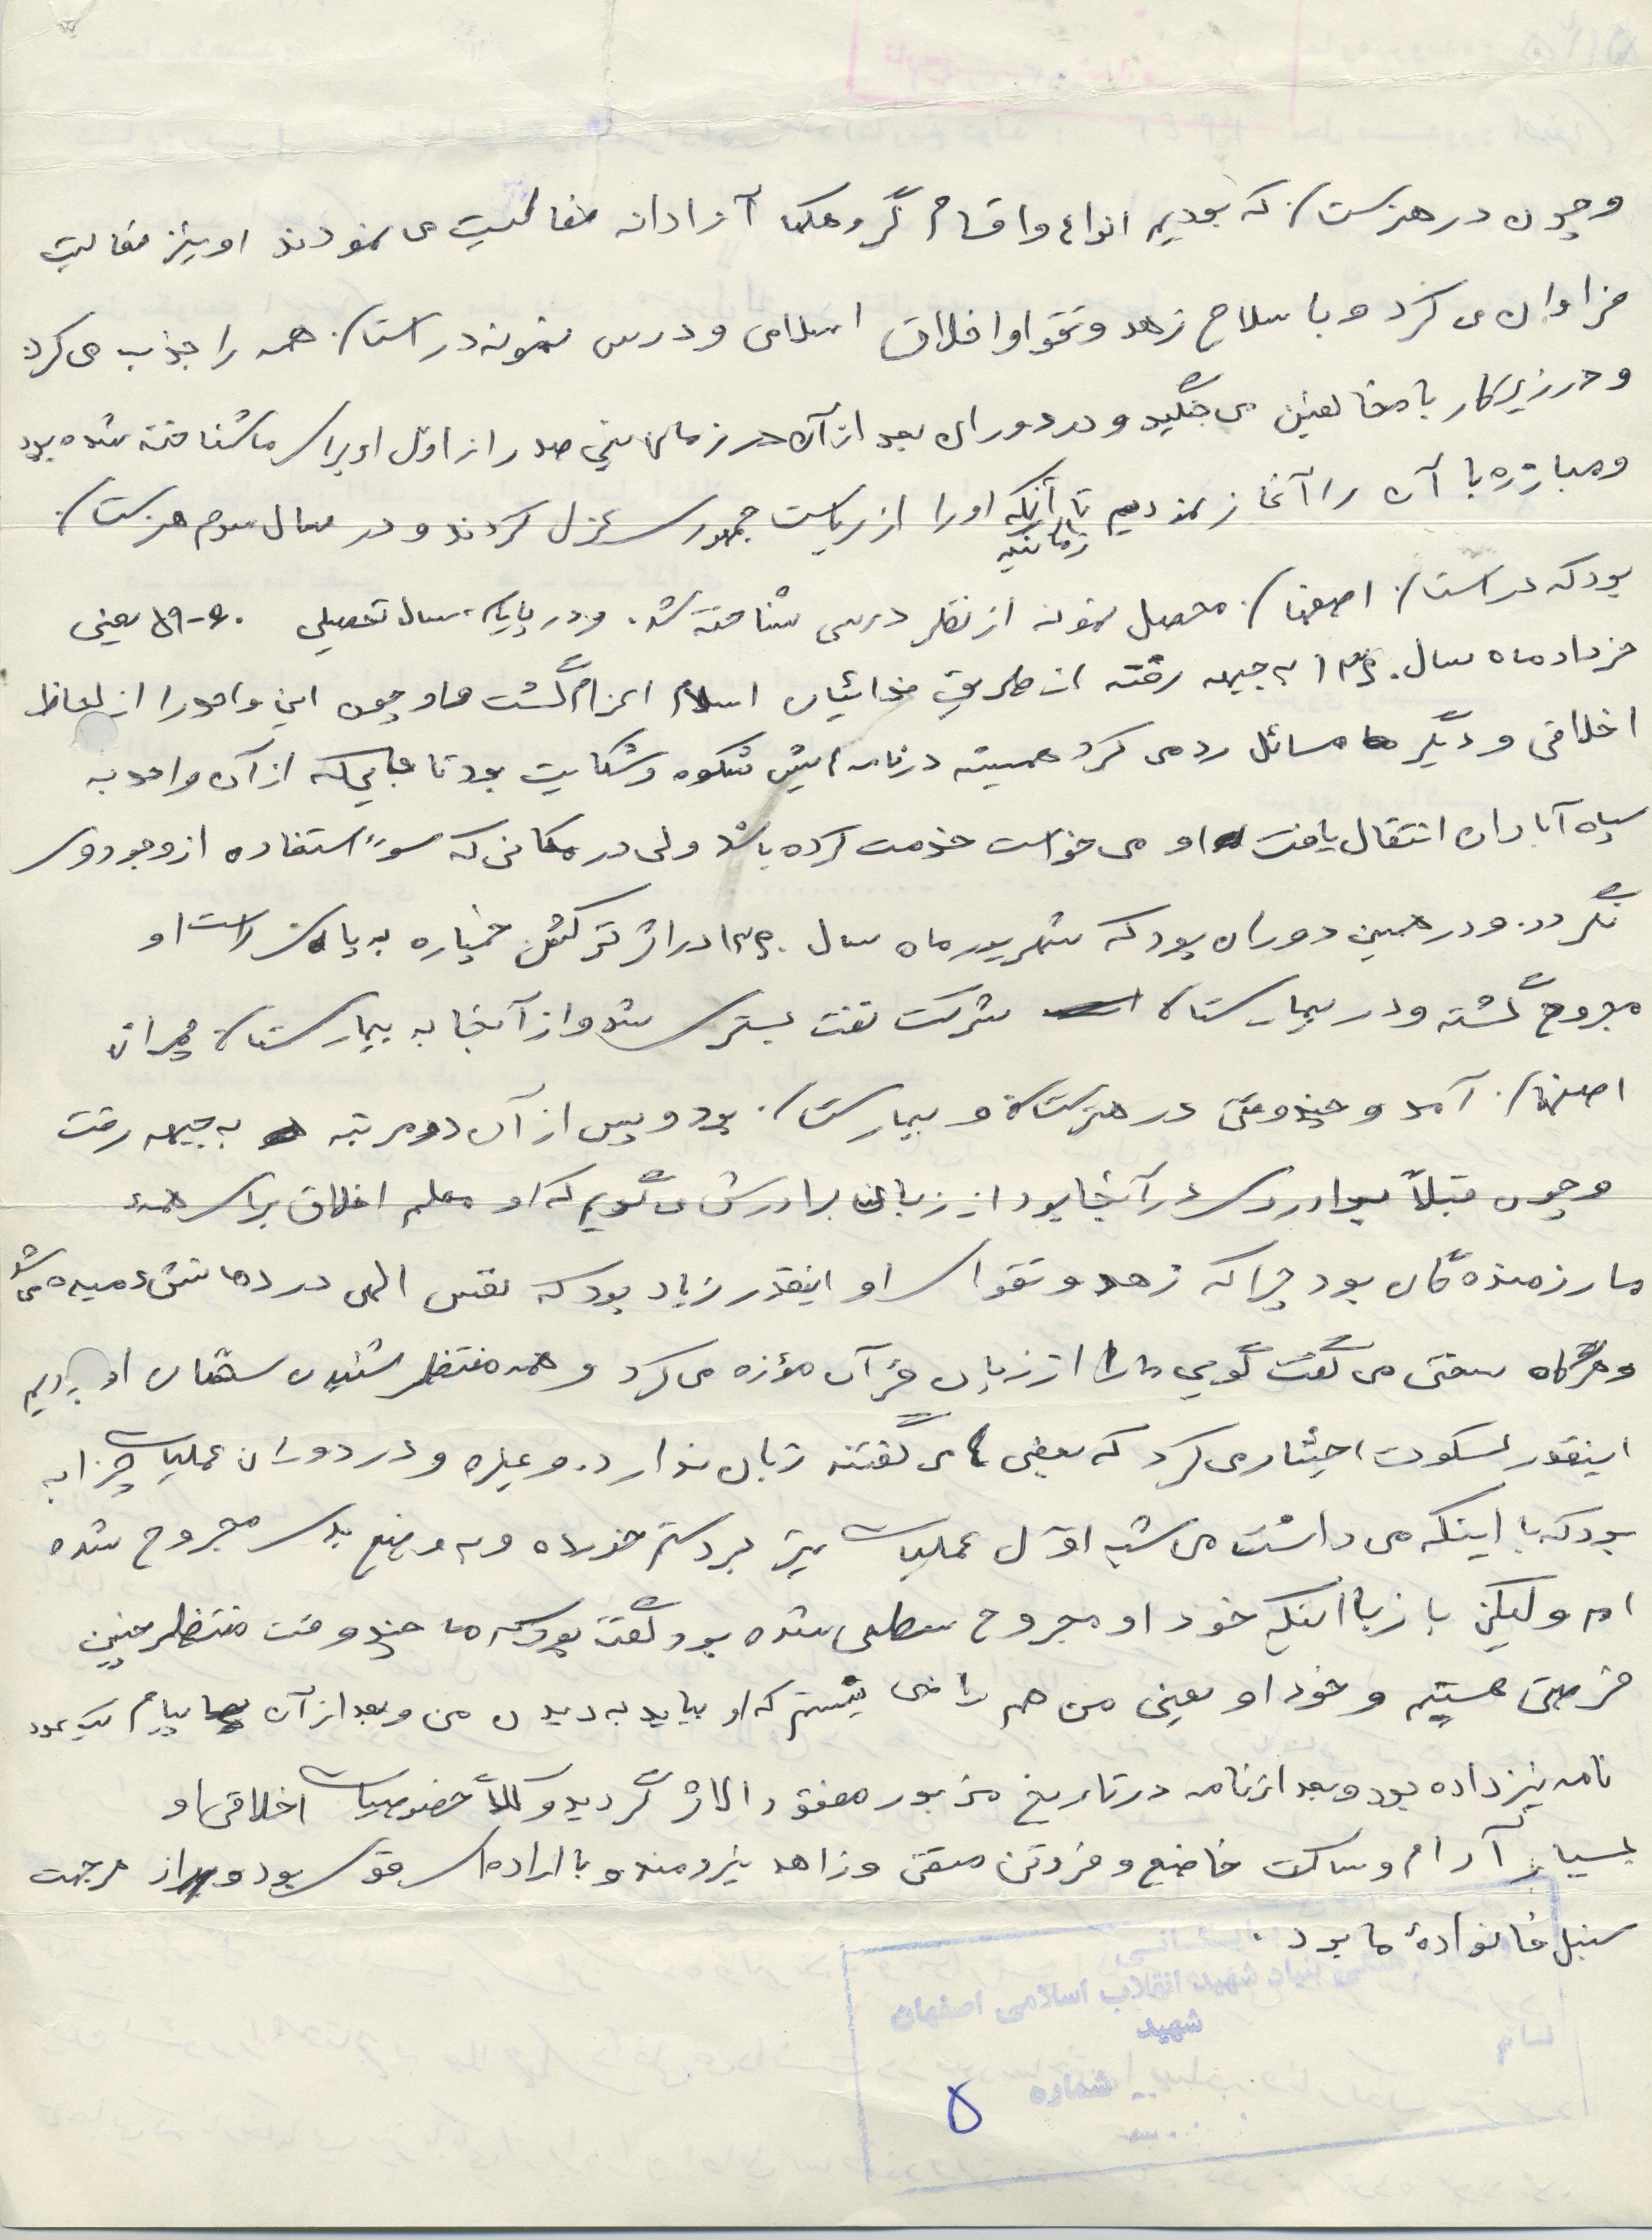 و چون در هنرستان که بودیم انواع و اقسام گروهکها آزادانه فعالیت می نمودند او نیز فعالیت
فراوان می کرد و با سلاح زهد و تقوا و اخلاق اسلامی و درس نمونه در استان همه را جذب می کرد
و در زیر کار با مخالفین می جنگید و در دوران بعد از آن در زمان بنی صدر از اول او برای ما شناخته شده بود
و مبارزه با آن را آغاز نمودیم تا آنکه او را از ریاست جمهوری عزل کردند و در سال سوم هنرستان
زمانیکه
بود که در استان اصفهان محصل نمونه از نظر درسی شناخته شد. و در پایان سال تحصیلی ۶۰-۵۹ یعنی
خرداد ماه سال ۱۳۶۰ به جبهه رفته از طریق فدائیان اسلام اعزام گشت و چون این واحد را از لحاظ
اخلاقی و دیگر مسائل رد می کرد همیشه در نامه هایش شکوه و شکایت بود تا جایی که از آن واحد به
سپاه آبادان انتقال یافت او می خواست خدمت کرده باشد ولی در مکانی که سوء استفاده از وجود وی
نگردد. و در همین دوران بود که شهریور ماه سال ۱۳۶۰ در اثر ترکش خمپاره به پای راست او
مجروح گشته و در بیمارستان شرکت نفت بستری شد و از آنجا به بیمارستان چمران
اصفهان آمد و چند وقتی در هنرستان و بیمارستان بود و پس از آن دو مرتبه به جبهه رفت
و چون قبلاً برادر وی در آنجا بود از زبان برادرش می گویم که او معلم اخلاق برای همهٔ
ما رزمنده گان بود چرا که زهد و تقوای او اینقدر زیاد بود که نفس الهی در دهانش دمیده می شد
و هرگاه سخنی می گفت گویی ما را از زبان قرآن موعظه می کرد و همه منتظر شنیدن سخنان او بودیم
اینقدر سکوت اختیار می کرد که بعضی ها می گفتند زبان ندارد. و غیره و در دوران عملیات چزابه
بود که با اینکه می دانست من شب اول عملیات تیر بر دستم خورده و به وضع بدی مجروح شده
ام ولیکن باز با اینکه خود او مجروح سطحی شده بود گفته بود که ما چند وقت منتظر چنین
فرصتی هستیم و خود او یعنی من هم راضی نیستم که او بیاید به دیدن من و بعد از آن پیام یک عدد
نامه نیز داده بود و بعد از نامه در تاریخ مزبور مفقود الاثر گردید و کلاً خصوصیات اخلاقی او
بسیار آرام و ساکت خاضع و فروتن متقی و زاهد نیرومند و با اراده ای قوی بود و از هر جهت
سنبل خانوادهٔ ما بود.
بنیاد شهید انقلاب اسلامی اصفهان
شهید
شماره
۵